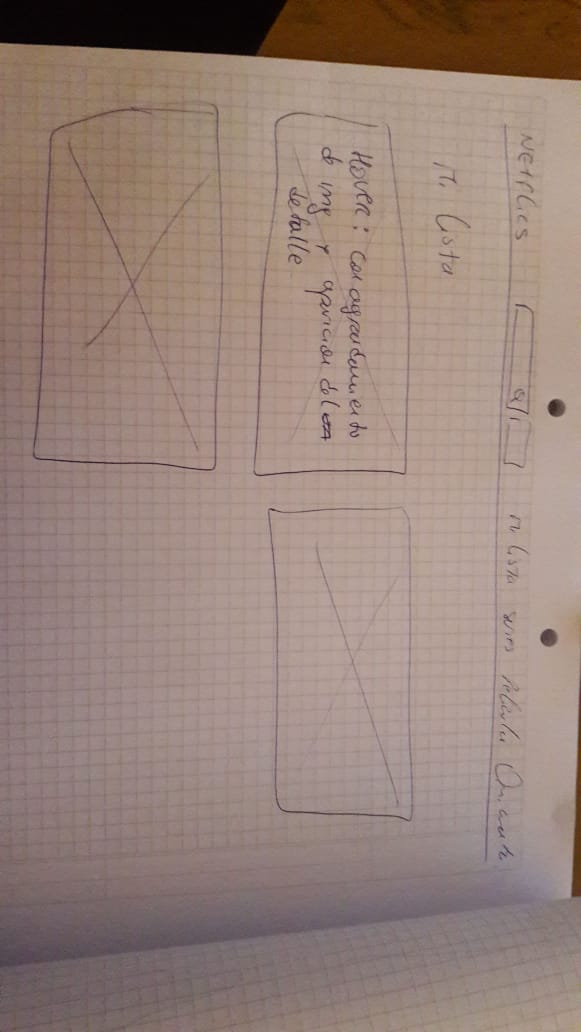 Netflics Mi lista series Película
Mi Lista
Hover: con agrandamiento
de img y aparicion del
detalle